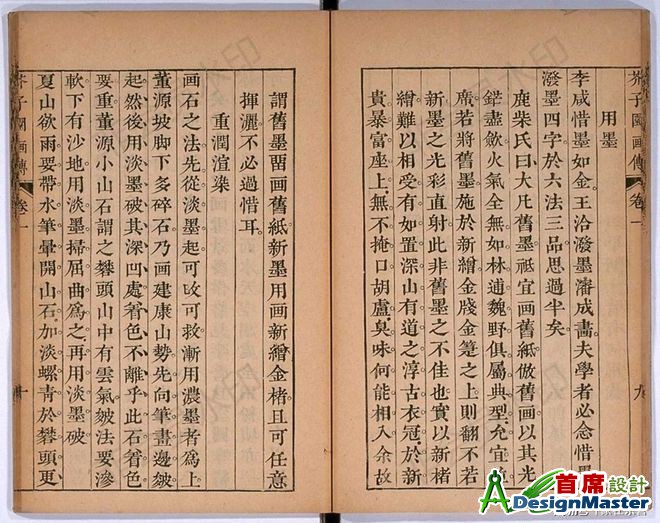 芥子園画傳 卷一 九
用墨
李成惜墨如金王洽潑墨瀋成畫夫學者必念惜墨
潑墨四字於六法三品思過半矣
鹿柴氏曰大凡舊墨祗宜画舊紙倣舊画以其光
鋩盡歛火氣全無如林逋魏野俱屬典型允宜
席若將舊墨施於新繒金牋金箑之上則翻不若
新墨之光彩直射此非舊墨之不佳也實以新楮
繒難以相受有如置深山有道之淳古衣冠於新
貴暴富座上無不掩口胡盧臭味何能相入余故
謂舊墨留画舊紙新墨用画新繒金楮且可任意
揮灑不必過惜耳
重潤渲染
画石之法先從淡墨起可改可救漸用濃墨者為上
董源坡脚下多碎石乃画建康山勢先向筆畫邊皴
起然後用淡墨破其深凹處着色不離乎此石着色
要重董源小山石謂之礬頭山中有雲氣皴法要滲
軟下有沙地用淡墨掃屈曲為之再用淡墨破
夏山欲雨要帶水筆暈開山石加淡螺青於礬頭更
芥子園画傳 卷一 十
首席設計
DesignMaster